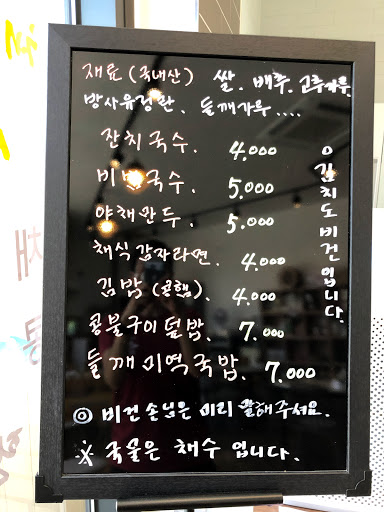 재료(국내산) 쌀. 배추. 고추가루.
방사유정란. 들깨가루 ....
잔치국수. 4.000
비빔국수. 5.000
야채완두. 5.000
채식감자라면. 4.000
김밥(콩햄). 4.000
콩불구이덮밥. 7.000
들깨미역국밥. 7.000
◎ 비건손님은 미리 말해주세요.
※ 국물은 채수 입니다.
○김치도비건입니다.